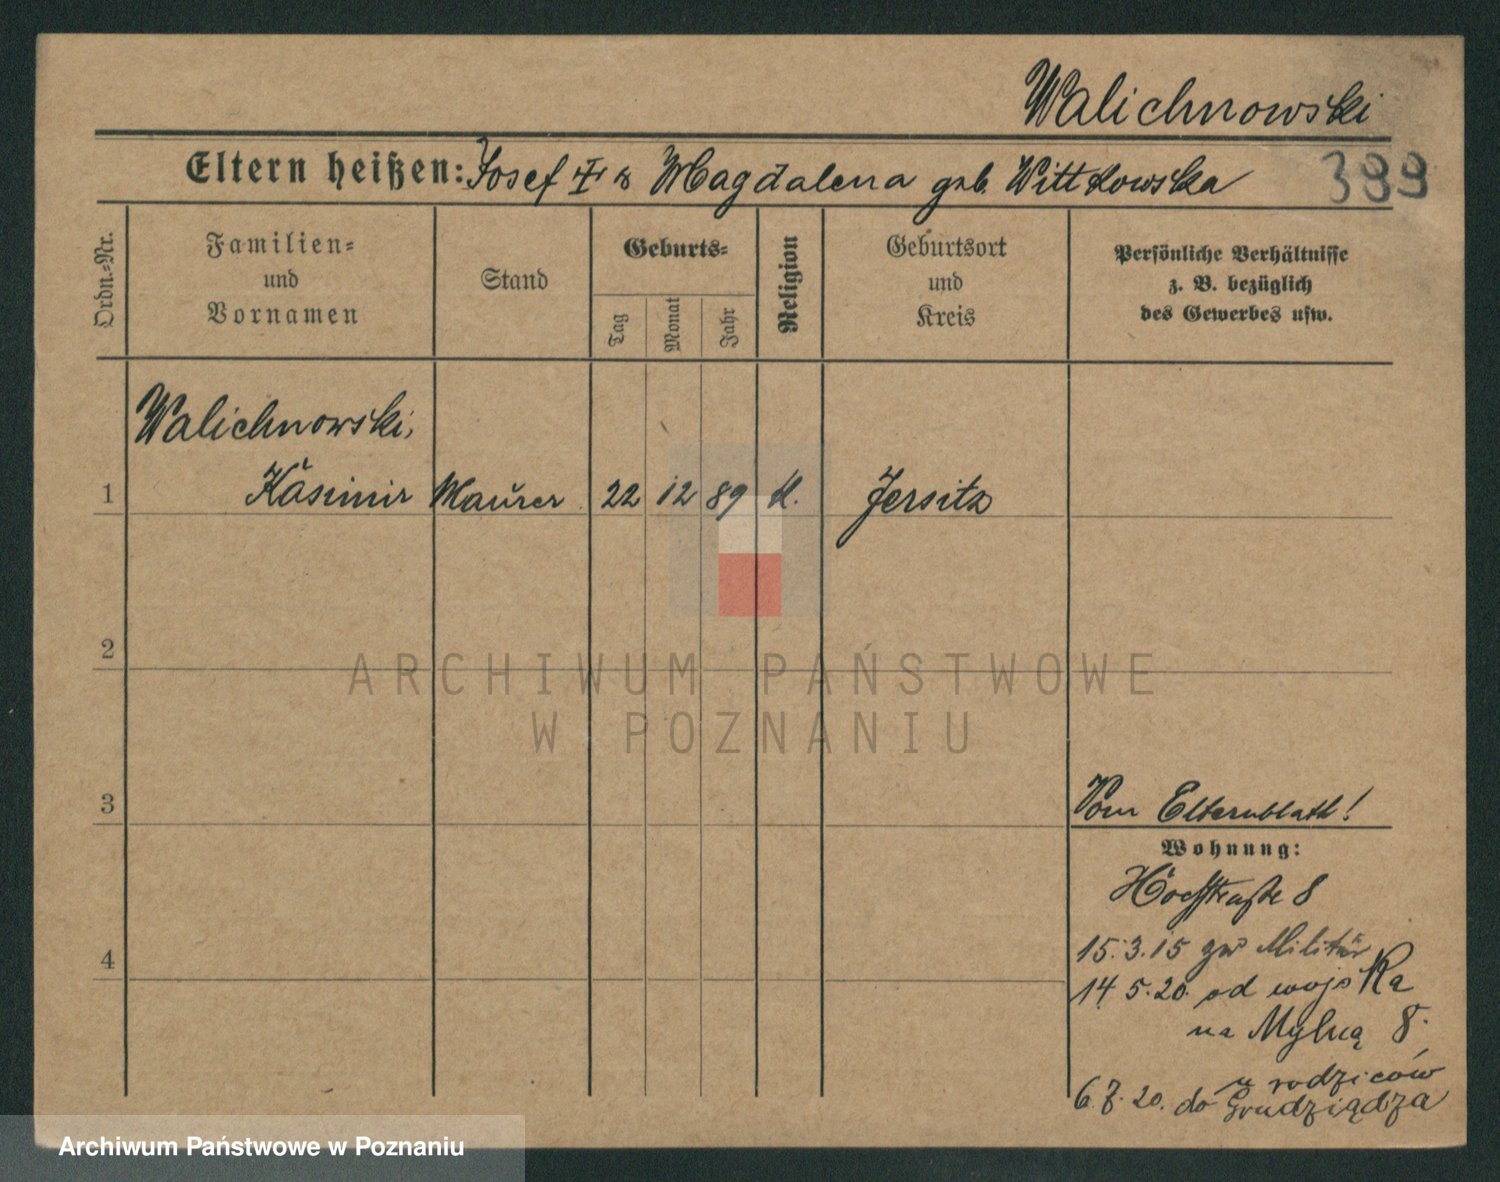 Walichnowski
Eltern heißen: Josef & Magdalena geb. Wittkowska
399
Ordn.=Nr.
Familien=
und
Vornamen
Stand
Geburts=
Tag
Monat
Jahr
Religion
Geburtsort
und
Kreis
Persönliche Verhältnisse
z. B. bezüglich
des Gewerbes usw.
Walichnowski,
1 Kasimir Maurer 22 12 89 k. Jersitz
2
ARCHIWUM PAŃSTWOWE
W POZNANIU
3
Vom Elternblatt!
Wohnung:
Hochstraße 8
15.3.15 zum Militär
4
14.5.20. od wojska
na Mylną 8.
u rodziców
6.7.20. do Grudziądza
Archiwum Państwowe w Poznaniu